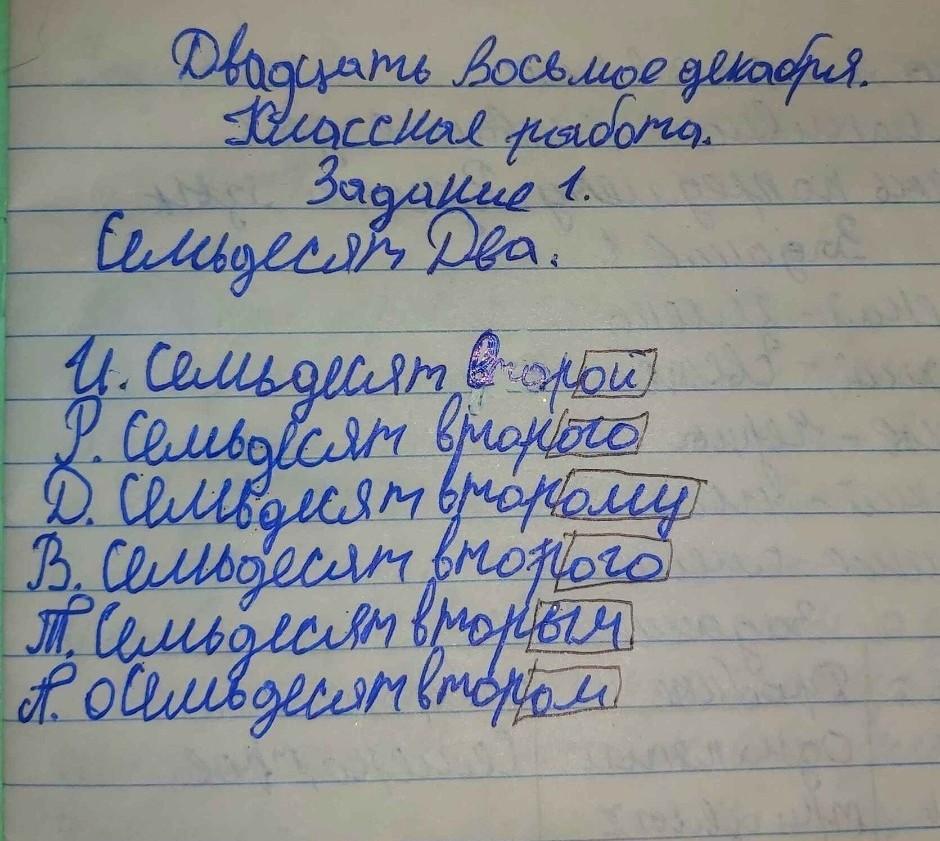 Двадцать восьмое декабря.
Классная работа.
Задание 1.
Семьдесят Два.
И. Семьдесят второй
Р. Семьдесят второго
Д. Семьдесят второму
В. Семьдесят второго
Т. Семьдесят вторым
П. о Семьдесят втором